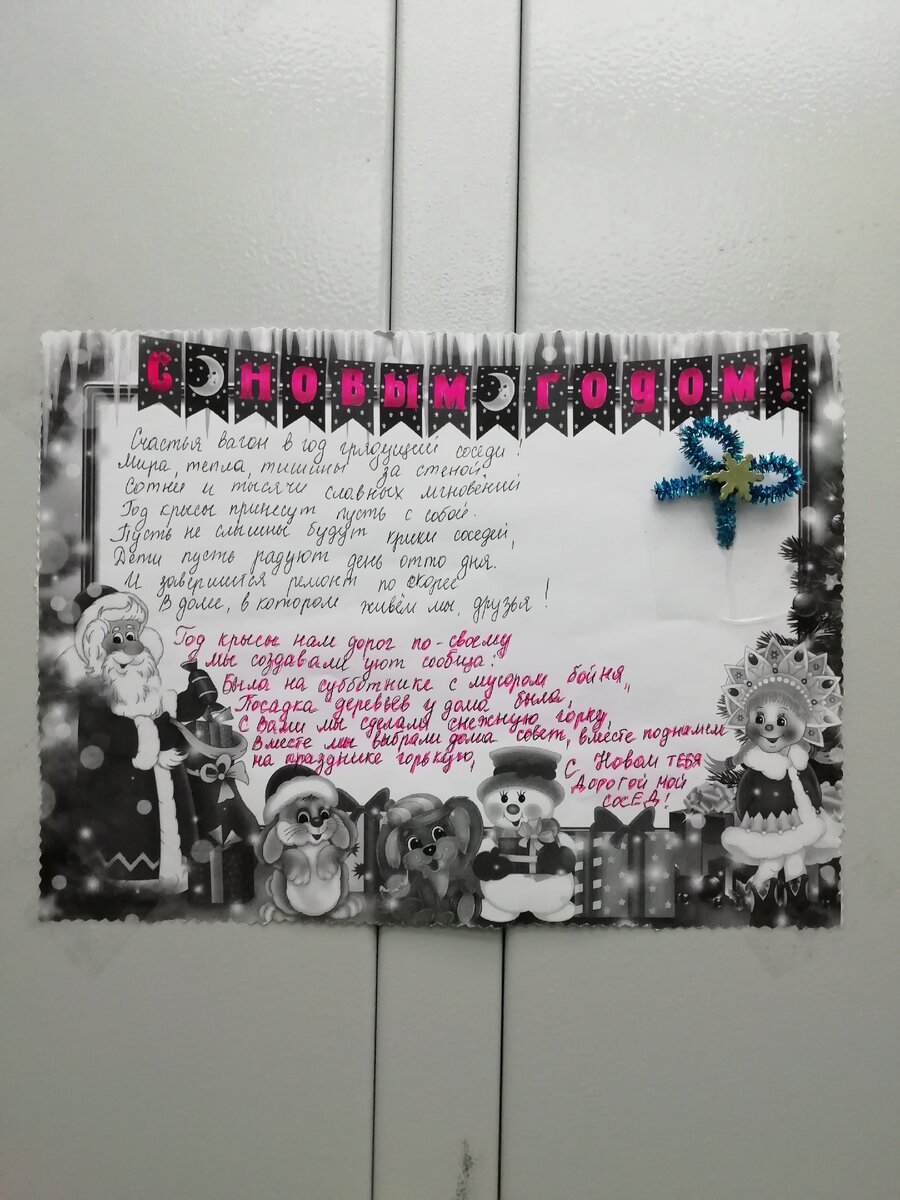 С НОВЫМ ГОДОМ!
Счастья вагон в год грядущий соседи!
Мира, тепла, тишины за стеной,
Сотни и тысячи славных мгновений
Год крысы принесут пусть с собой.
Пусть не слышны будут крики соседей,
Дети пусть радуют день ото дня.
И завершится ремонт по скорее
В доме, в котором живём мы, друзья!
Год крысы нам дорог по-своему
мы создавали уют сообща:
Была на субботнике с мусором бойня,
Посадка деревьев у дома была,
С Вами мы сделали снежную горку,
Вместе мы выбрали дома совет, вместе поднимем
на празднике горькую,
С Новам тебя
Дорогой мой
СОСЕД!